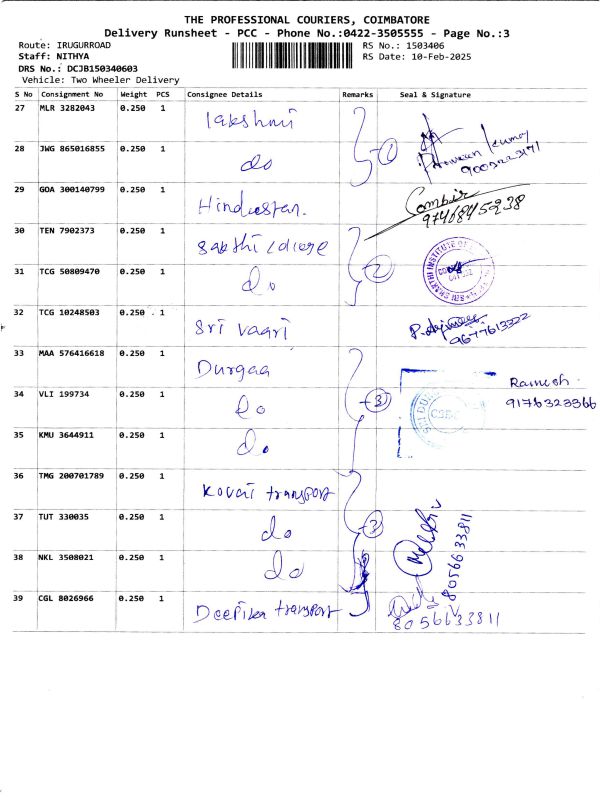 THE PROFESSIONAL COURIERS, COIMBATORE
Delivery Runsheet - PCC - Phone No.:0422-3505555 - Page No.:3
Route: IRUGURROAD RS No.: 1503406
Staff: NITHYA RS Date: 10-Feb-2025
DRS No.: DCJB150340603
Vehicle: Two Wheeler Delivery
S No Consignment No Weight PCS Consignee Details Remarks Seal & Signature
27 MLR 3282043 0.250 1 lakshmi
28 JWG 865016855 0.250 1 do
29 GOA 300140799 0.250 1 Hindustan. 9746845238
30 TEN 7902373 0.250 1 Sakthi college
31 TCG 50809470 0.250 1 do 2
32 TCG 10248503 0.250 1 Sri vaari 9677613322
33 MAA 576416618 0.250 1 Durgaa Ramesh
34 VLI 199734 0.250 1 do 3 9176323366
35 KMU 3644911 0.250 1 do
36 TMG 200701789 0.250 1 Kovai transport
37 TUT 330035 0.250 1 do 8056633811
38 NKL 3508021 0.250 1 do
39 CGL 8026966 0.250 1 Deepika transport 8056633811